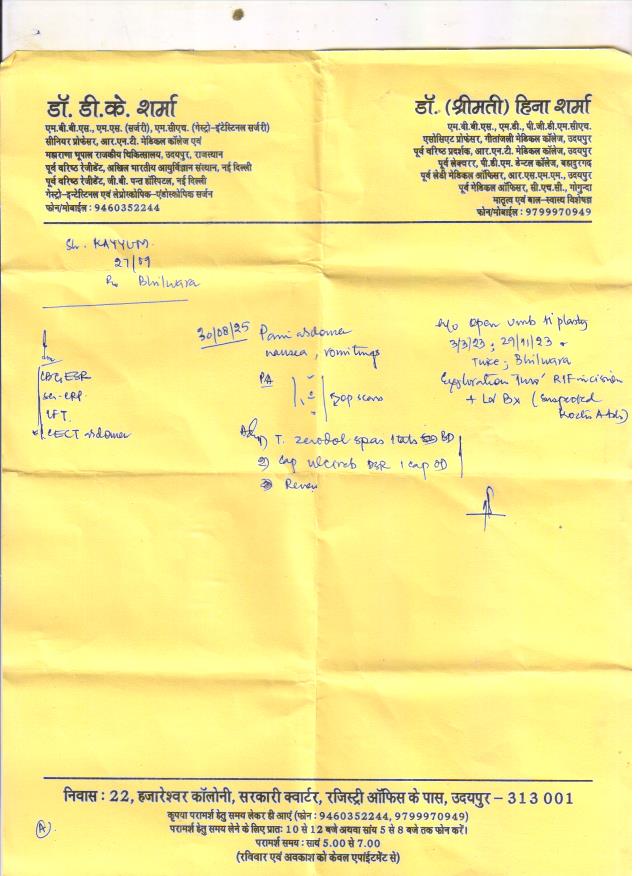 डॉ. डी.के. शर्मा
एम.बी.बी.एस., एम.एस. (सर्जरी), एम.सीएच. (गेस्ट्रो-इंटेस्टिनल सर्जरी)
सीनियर प्रोफेसर, आर.एन.टी. मेडिकल कॉलेज एवं
महाराणा भूपाल राजकीय चिकित्सालय, उदयपुर, राजस्थान
पूर्व वरिष्ठ रेजीडेंट, अखिल भारतीय आयुर्विज्ञान संस्थान, नई दिल्ली
पूर्व वरिष्ठ रेजीडेंट, जी.बी. पन्त हॉस्पिटल, नई दिल्ली
गेस्ट्रो-इन्टेस्टिनल एवं लेप्रोस्कोपिक-एंडोस्कोपिक सर्जन
फोन/मोबाईल : 9460352244
डॉ. (श्रीमती) हिना शर्मा
एम.बी.बी.एस., एम.डी., पी.जी.डी.एम.सीएच.
एसोसिएट प्रोफेसर, गीतांजली मेडिकल कॉलेज, उदयपुर
पूर्व वरिष्ठ प्रदर्शक, आर.एन.टी. मेडिकल कॉलेज, उदयपुर
पूर्व लेक्चरर, पी.डी.एम. डेन्टल कॉलेज, बहादुरगढ़
पूर्व लेडी मेडिकल ऑफिसर, आर.एस.एम.एम., उदयपुर
पूर्व मेडिकल ऑफिसर, सी.एच.सी., गोगुन्दा
मातृत्व एवं बाल-स्वास्थ्य विशेषज्ञ
फोन/मोबाईल : 9799970949
Sh. KAYYUM
27/
Bhilwara
CBC, ESR
Ser. CRP
LFT
CECT abdomen
30/08/25 Pain abdomen
nausea, vomitings
PA
scars
1) T. zerodol spas 1 tab BD
2) Cap DSR 1 cap OD
3) Review
H/o open umb H plasty
3/3/23 ; 29/11/23
Twice, Bhilwara
Exploration RIF incision
+ LN Bx (suspected
)
निवास : 22, हजारेश्वर कॉलोनी, सरकारी क्वार्टर, रजिस्ट्री ऑफिस के पास, उदयपुर – 313 001
कृपया परामर्श हेतु समय लेकर ही आएं (फोन : 9460352244, 9799970949)
परामर्श हेतु समय लेने के लिए प्रातः 10 से 12 बजे अथवा सांय 5 से 8 बजे तक फोन करें।
परामर्श समय : सायं 5.00 से 7.00
(रविवार एवं अवकाश को केवल एपॉईटमेंट से)
A